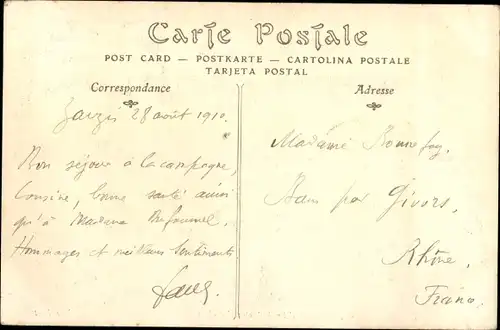 Carte Postale
POST CARD — POSTKARTE — CARTOLINA POSTALE
TARJETA POSTAL
Correspondance
Zarzis 28 août 1910.
Bon séjour à la campagne,
Cousine, bonne santé ainsi
qu'à Madame
Hommages et meilleurs sentiments
Adresse
Madame Bonnefoy,
par Givors,
Rhône.
France